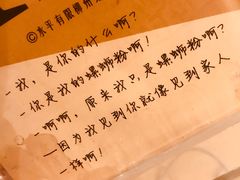 ©水平有限柳州
-我,是你的什么啊?
-你是我的螺蛳粉啊!
-啊啊,原来我只是螺蛳粉啊?
-因为我见到你就像见到家人
一样啊!